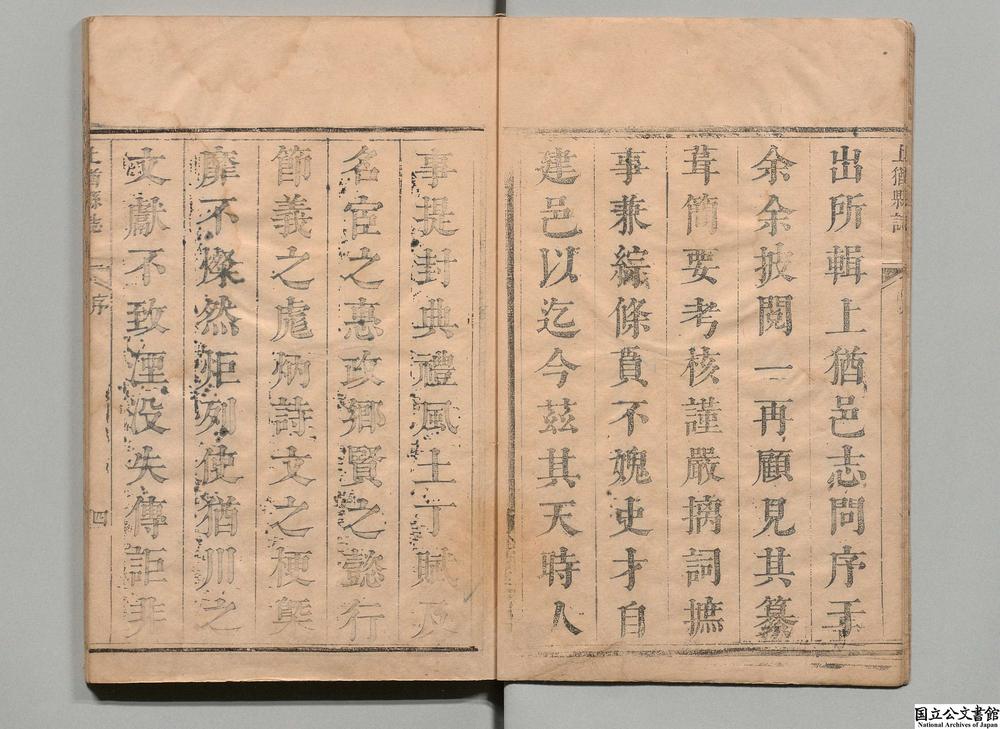 上猶縣誌
出所輯上猶邑志問序于
余余披閱一再顧見其纂
葺簡要考核謹嚴摛詞摭
事兼綜條貫不媿史才自
建邑以迄今茲其天時人
事提封典禮風土丁賦及
名宦之惠政鄉賢之懿行
節義之彪炳詩文之梗槩
靡不燦然炬列使猶川之
文獻不致湮没失傳詎非
上猶縣誌
序
四
国立公文書館
National Archives of Japan